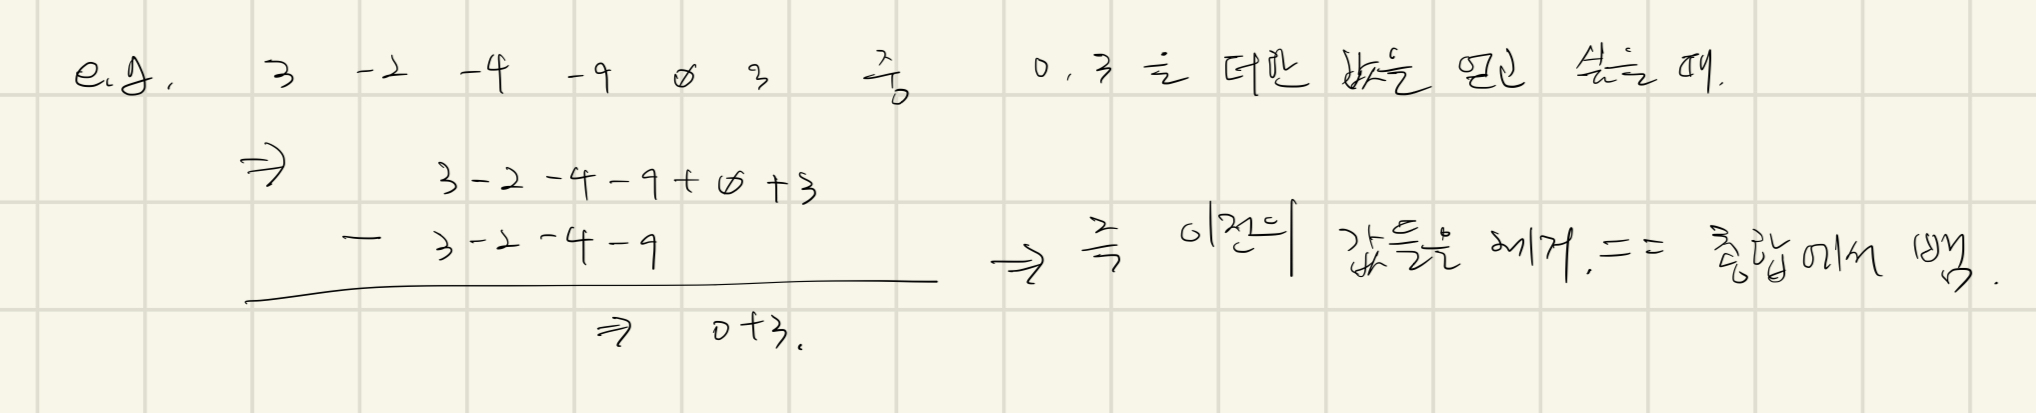 e.g. 3 -2 -4 -9 0 3 중 0, 3 을 더한 값을 얻고 싶을 때.
⇒ 3-2-4-9+0+3
- 3-2-4-9
⇒ 즉 이전의 값들을 제거. == 총합에서 뺌.
⇒ 0+3.